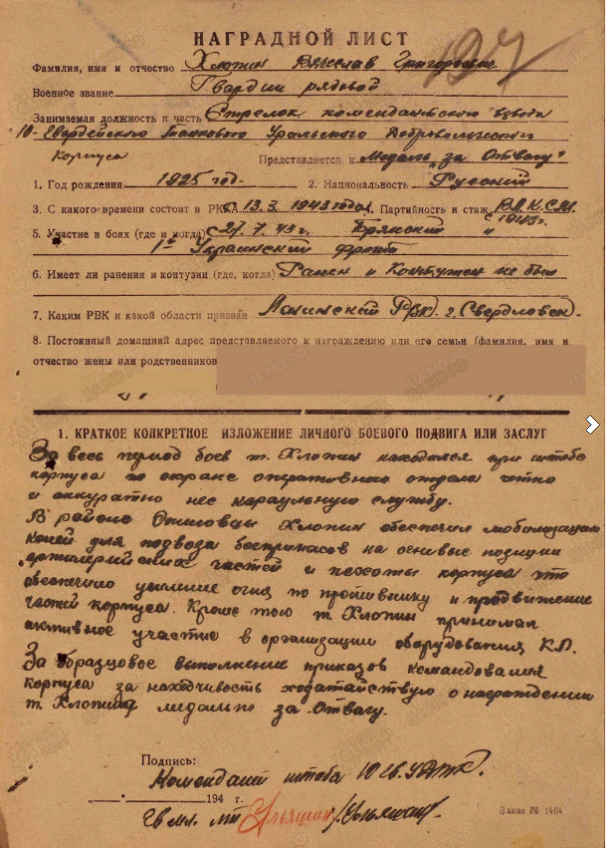 НАГРАДНОЙ ЛИСТ
197
Фамилия, имя и отчество Хлопин Вячеслав Григорьевич
Военное звание Гвардии рядовой
Занимаемая должность и часть Стрелок комендантского взвода
10- Гвардейского Танкового Уральского Добровольческого
Корпуса Представляется к Медаль „за Отвагу"
1. Год рождения 1925 год. 2. Национальность Русский
3. С какого времени состоит в РККА с 13.3.1943 года 4. Партийность и стаж ВЛКСМ
с 1943г.
5. Участие в боях (где и когда) с 27.7.43г. Брянский и
1й Украинский фронт
6. Имеет ли ранения и контузии (где, когда) Ранен и Контужен не был
7. Каким РВК и какой области призван Ленинский РВК г. Свердловск.
8. Постоянный домашний адрес представляемого к награждению или его семьи (фамилия, имя и
отчество жены или родственников
1. КРАТКОЕ КОНКРЕТНОЕ ИЗЛОЖЕНИЕ ЛИЧНОГО БОЕВОГО ПОДВИГА ИЛИ ЗАСЛУГ
За весь период боев т. Хлопин находился при штабе
корпуса по охране оперативного отдела четко
и аккуратно нес караульную службу.
В районе Хлопин обеспечил мобилизацию
коней для подвоза боеприпасов на огневые позиции
артелерийских частей и пехоты корпуса что
обеспечило усиление огня по противнику и продвижение
частей корпуса. Кроме того т. Хлопин принимал
активное участие в организации оборудования К.П.
За образцовое выполнение приказов командования
корпуса за находчивость ходатайствую о награждении
т. Хлопина медалью за Отвагу.
Подпись:
Комендант штаба 10 гв. УДТК.
194 г.
Гв мл. лт Ульяшин /Ульяшин/
Заказ № 1464